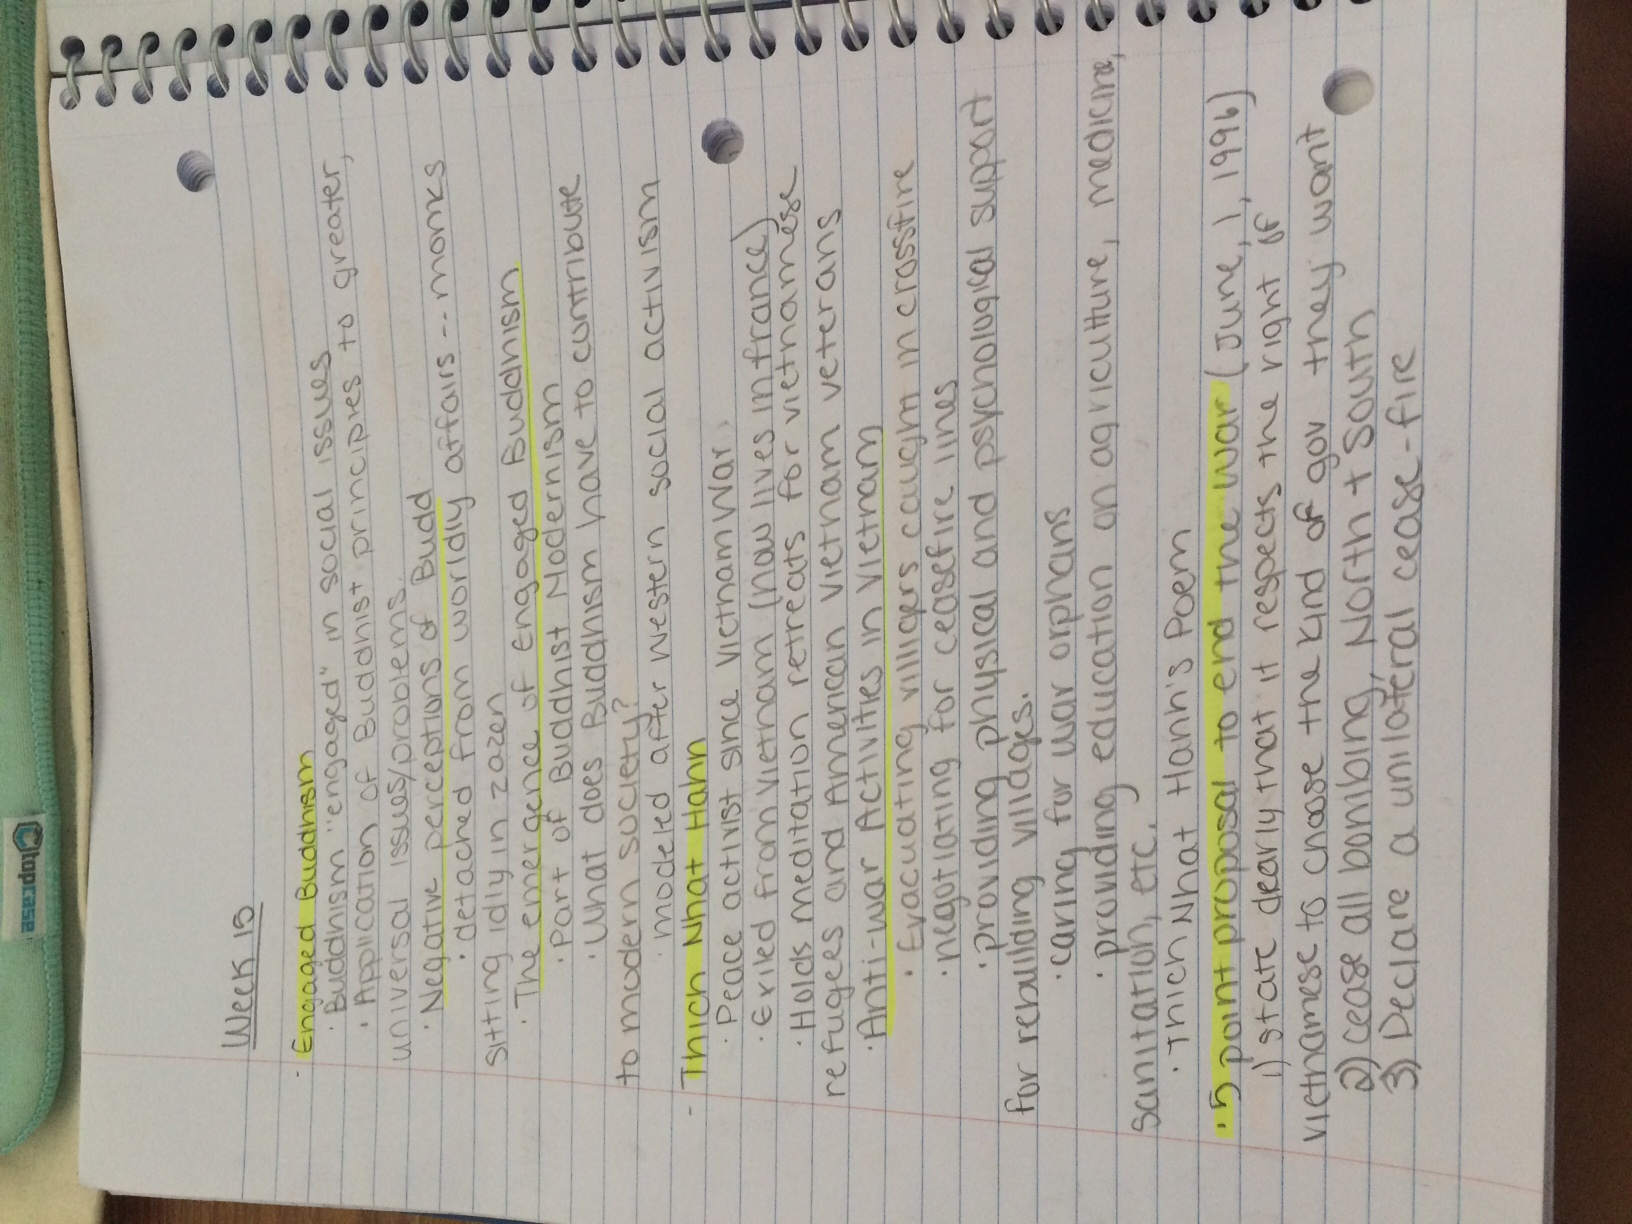 Week 15
- Engaged Buddhism
· Buddhism "engaged" in social issues
· Application of Buddhist principles to greater,
universal issues/problems.
· Negative perceptions of Budd
· detached from worldly affairs -- monks
sitting idly in zazen
· The emergence of Engaged Buddhism
· Part of Buddhist Modernism
· What does Buddhism have to contribute
to modern society?
· modeled after western social activism
- Thich Nhat Hahn
· Peace activist since Vietnam War
· Exiled from Vietnam (now lives in france)
· Holds meditation retreats for vietnamese
refugees and American Vietnam veterans
· Anti-war Activities in Vietnam
· Evacuating villigers caught in crossfire
· negotiating for ceasefire lines
· providing physical and psychological support
for rebuilding villages.
· caring for war orphans
· providing education on agriculture, medicine,
sanitation, etc.
· Thich Nhat Hanh's Poem
· 5 point proposal to end the war (June, 1, 1996)
1) state clearly that it respects the right of
vietnamese to choose the kind of gov they want
2) cease all bombing, North + South
3) Declare a unilateral cease-fire
toprase